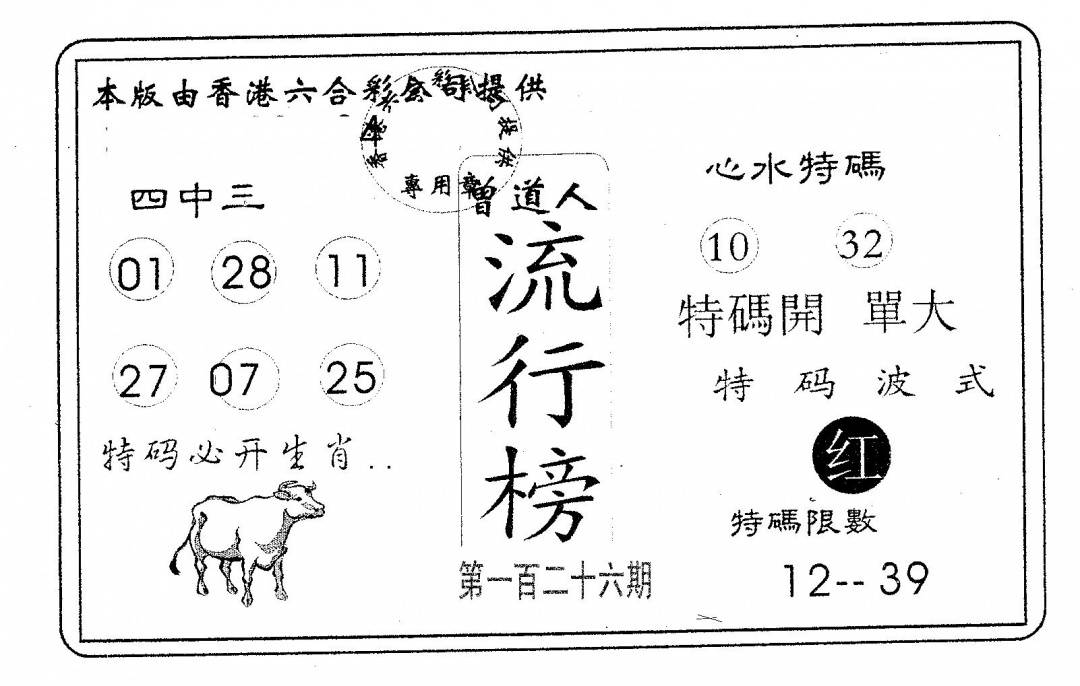 本版由香港六合彩公司提供
專用章
四中三
01 28 11
27 07 25
特码必开生肖..
曾道人
流行榜
第一百二十六期
心水特碼
10 32
特碼開 單大
特码波式
红
特碼限數
12-- 39